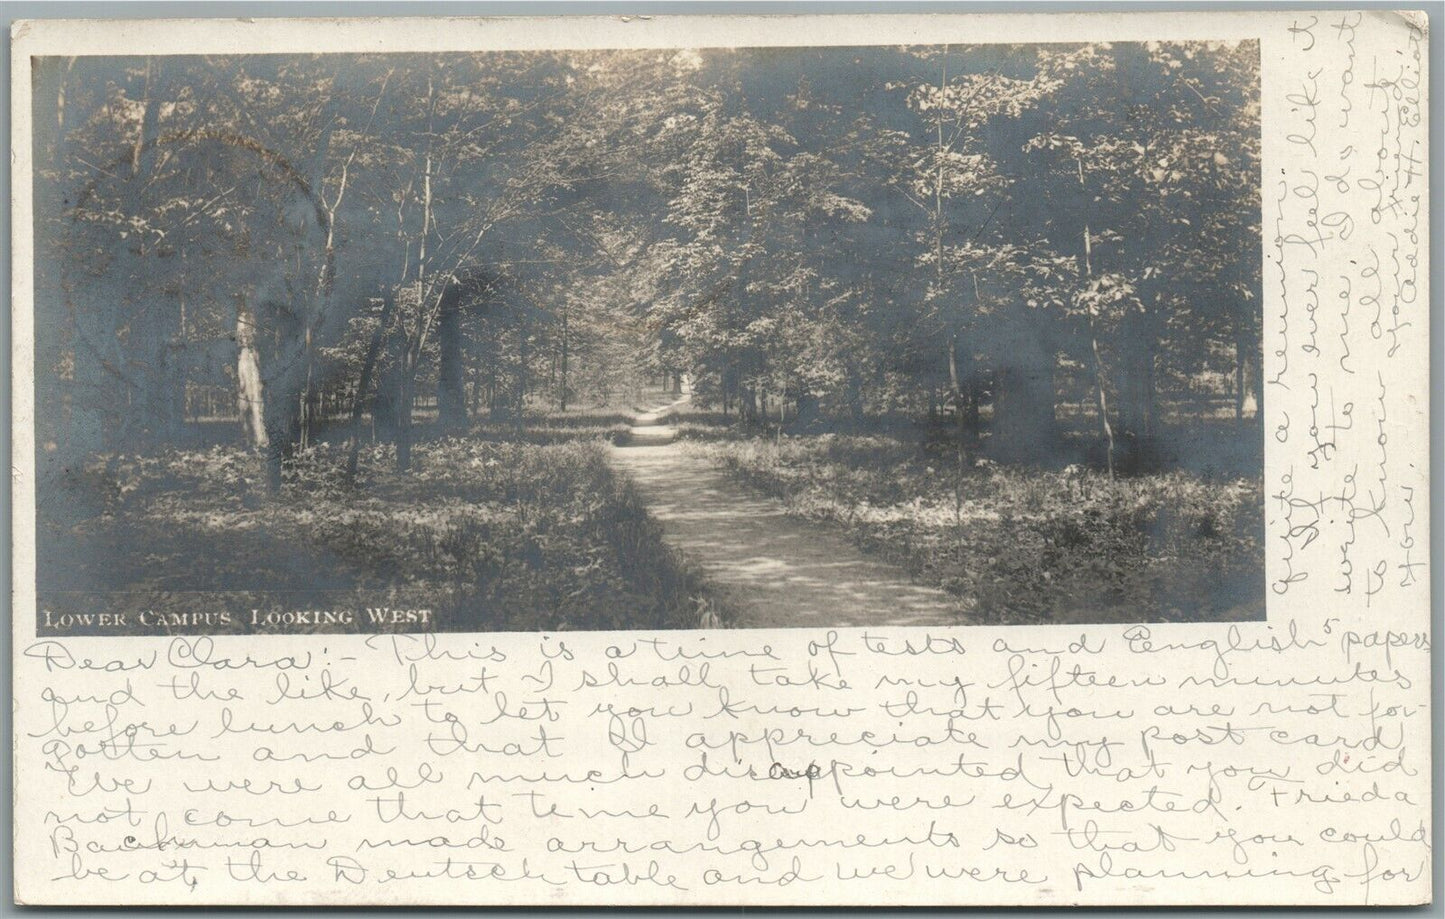 LOWER CAMPUS LOOKING WEST
Dear Clara:- This is a time of tests and English papers
and the like, but I shall take my fifteen minutes
before lunch to let you know that you are not for-
gotten and that I appreciate my post card.
We were all much disappointed that you did
not come that time you were expected. Frieda
Backerman made arrangements so that you could
be at the Deutsch table and we were planning for
quite a reunion.
If you ever feel like it
write to me. I do want
to know all about
you. Your friend
Addie H. Elliott